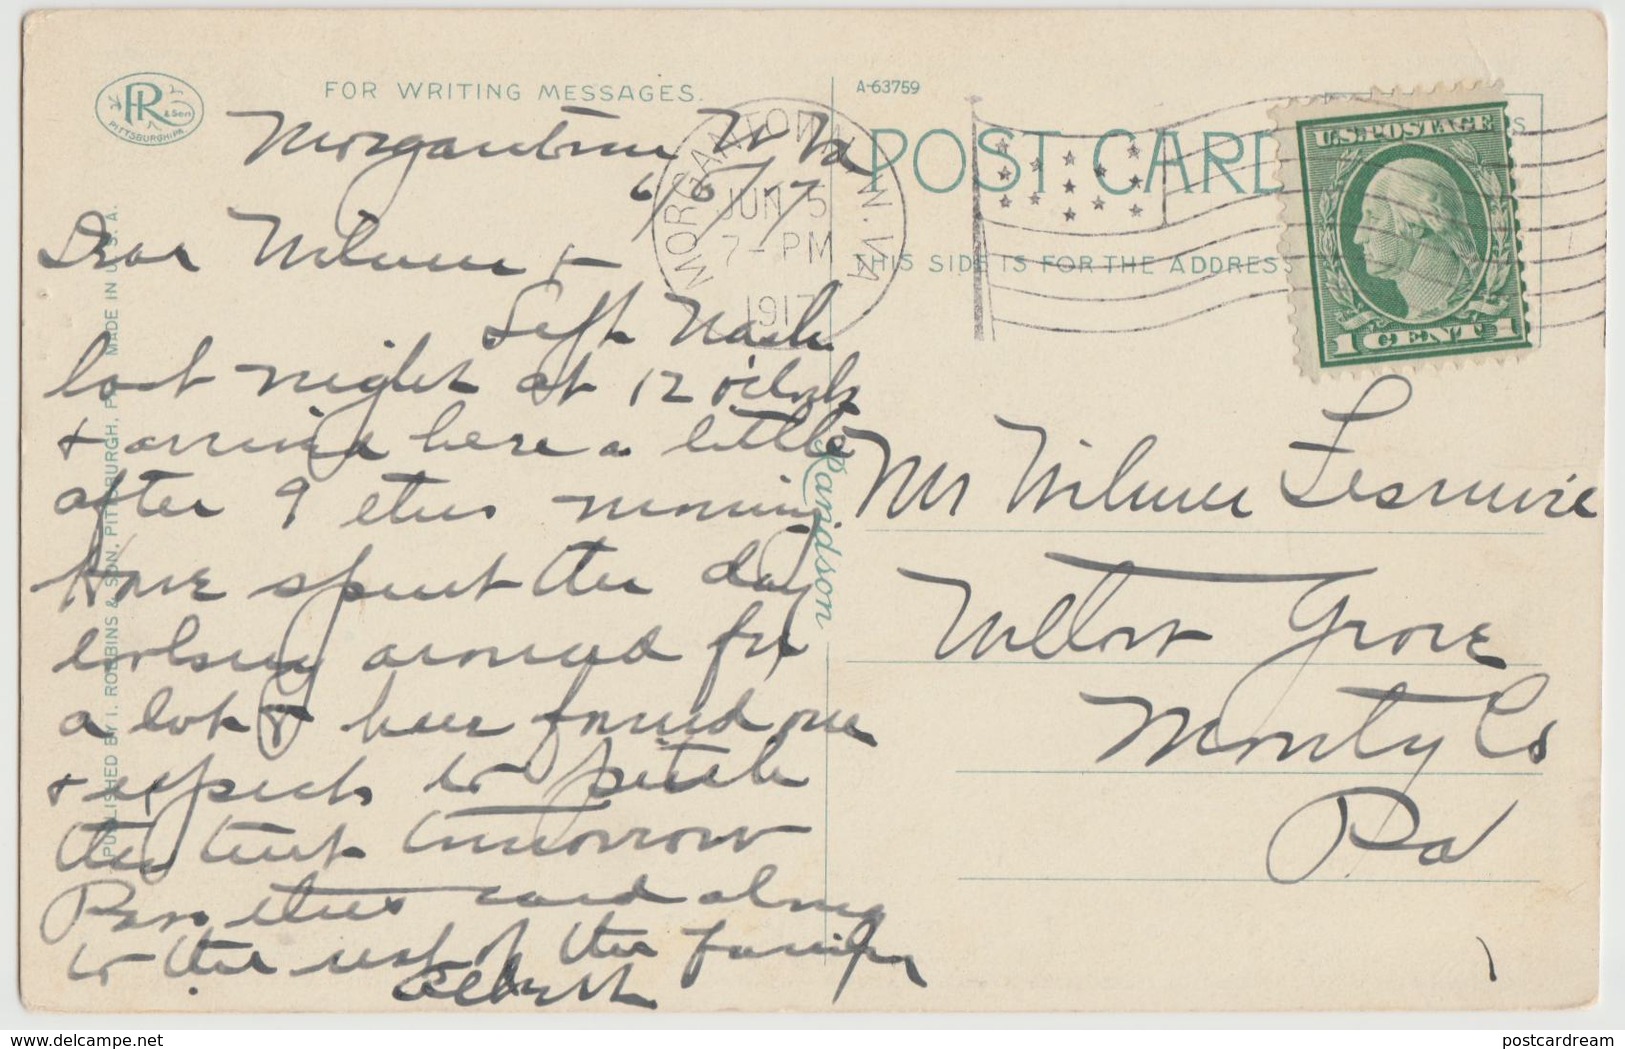 PR & Son
PITTSBURGH, PA.
FOR WRITING MESSAGES.
Morgantown W Va
6/5/17
Dear Wilmer +
Left Nash
last night at 12 o'clock
+ arrived here a little
after 9 this morning
Have spent the day
looking around for
a lot & have found one
+ expect to pitch
the tent tomorrow
Pass this card along
to the rest of the family
Albert
PUBLISHED BY I. ROBBINS & SON, PITTSBURGH, PA. MADE IN U.S.A.
Randson
MORGANTOWN W. VA.
JUN 5
7-PM
1917
A-63759
POST CARD
THIS SIDE IS FOR THE ADDRESS
U.S. POSTAGE
1 CENT 1
Mr Wilmer
Willow Grove
Monty Co
Pa
delcampe.net
postcardream